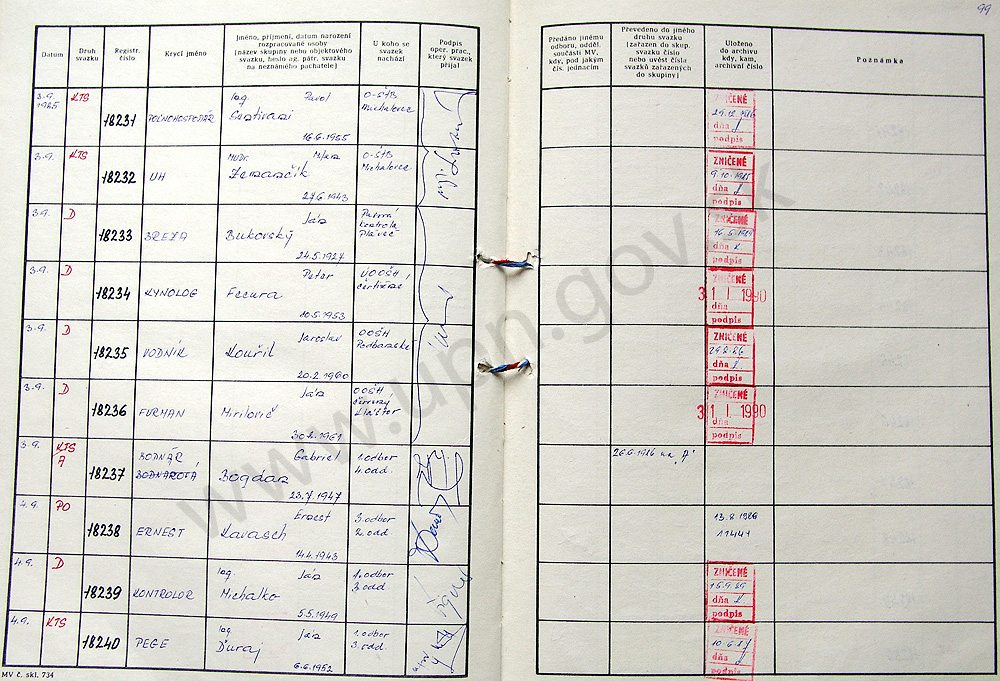 99
Datum
Druh svazku
Registr. číslo
Krycí jméno
Jméno, příjmení, datum narození
rozpracované osoby
(název skupiny nebo objektového
svazku, heslo ag. pátr. svazku
na neznámého pachatele)
U koho se
svazek
nachází
Podpis
oper. prac.,
který svazek
přijal
Předáno jinému
odboru, odděl.
součásti MV,
kdy, pod jakým
čís. jednacím
Převedeno do jiného
druhu svazku
(zařazen do skup.
svazku číslo
nebo uvést čísla
svazků zařazených
do skupiny)
Uloženo
do archivu
kdy, kam,
archivní číslo
Poznámka
3.9. 1985 KTS 18231 POĽNOHOSPODÁR Ing. Pavol
16.6.1955
O-ŠTB
Michalovce
ZNIČENÉ
dňa
podpis
3.9. KTS 18232 UH MUDr.
27.6.1943
O-ŠTB
Michalovce
ZNIČENÉ
9.10.1985
dňa
podpis
3.9. D 18233 BREZA Ján
Bukovský
24.5.1927
kontrola
ZNIČENÉ
dňa
podpis
3.9. D 18234 KYNOLOG Peter
Fecura
10.5.1953
ZNIČENÉ
31 I. 1990
dňa
podpis
3.9. D 18235 VODNÍK Jaroslav
Kouřil
20.2.1960
OOŠH
ZNIČENÉ
dňa
podpis
3.9. D 18236 FURMAN Ján
Mirilovič
30.8.1961
OOŠH
Červený
Kláštor
ZNIČENÉ
31 I. 1990
dňa
podpis
3.9. KTS A 18237 BODNÁR
BODNAROVÁ
Gabriel
Bogdan
23.7.1947
1.odbor
4.odd.
26.6.1986 na "A"
4.9. PO 18238 ERNEST Ernest
Kavasch
14.4.1943
3.odbor
2.odd
13.8.1986
11441
4.9. D 18239 KONTROLOR Ing. Ján
Michalko
5.5.1949
1.odbor
3.odd
ZNIČENÉ
15.9.89
dňa
podpis
4.9. KTS 18240 PEGE Ing. Ján
Ďuraj
6.6.1952
1.odbor
3.odd.
ZNIČENÉ
10.6.87
dňa
podpis
MV č. skl. 734
www.upn.gov.sk